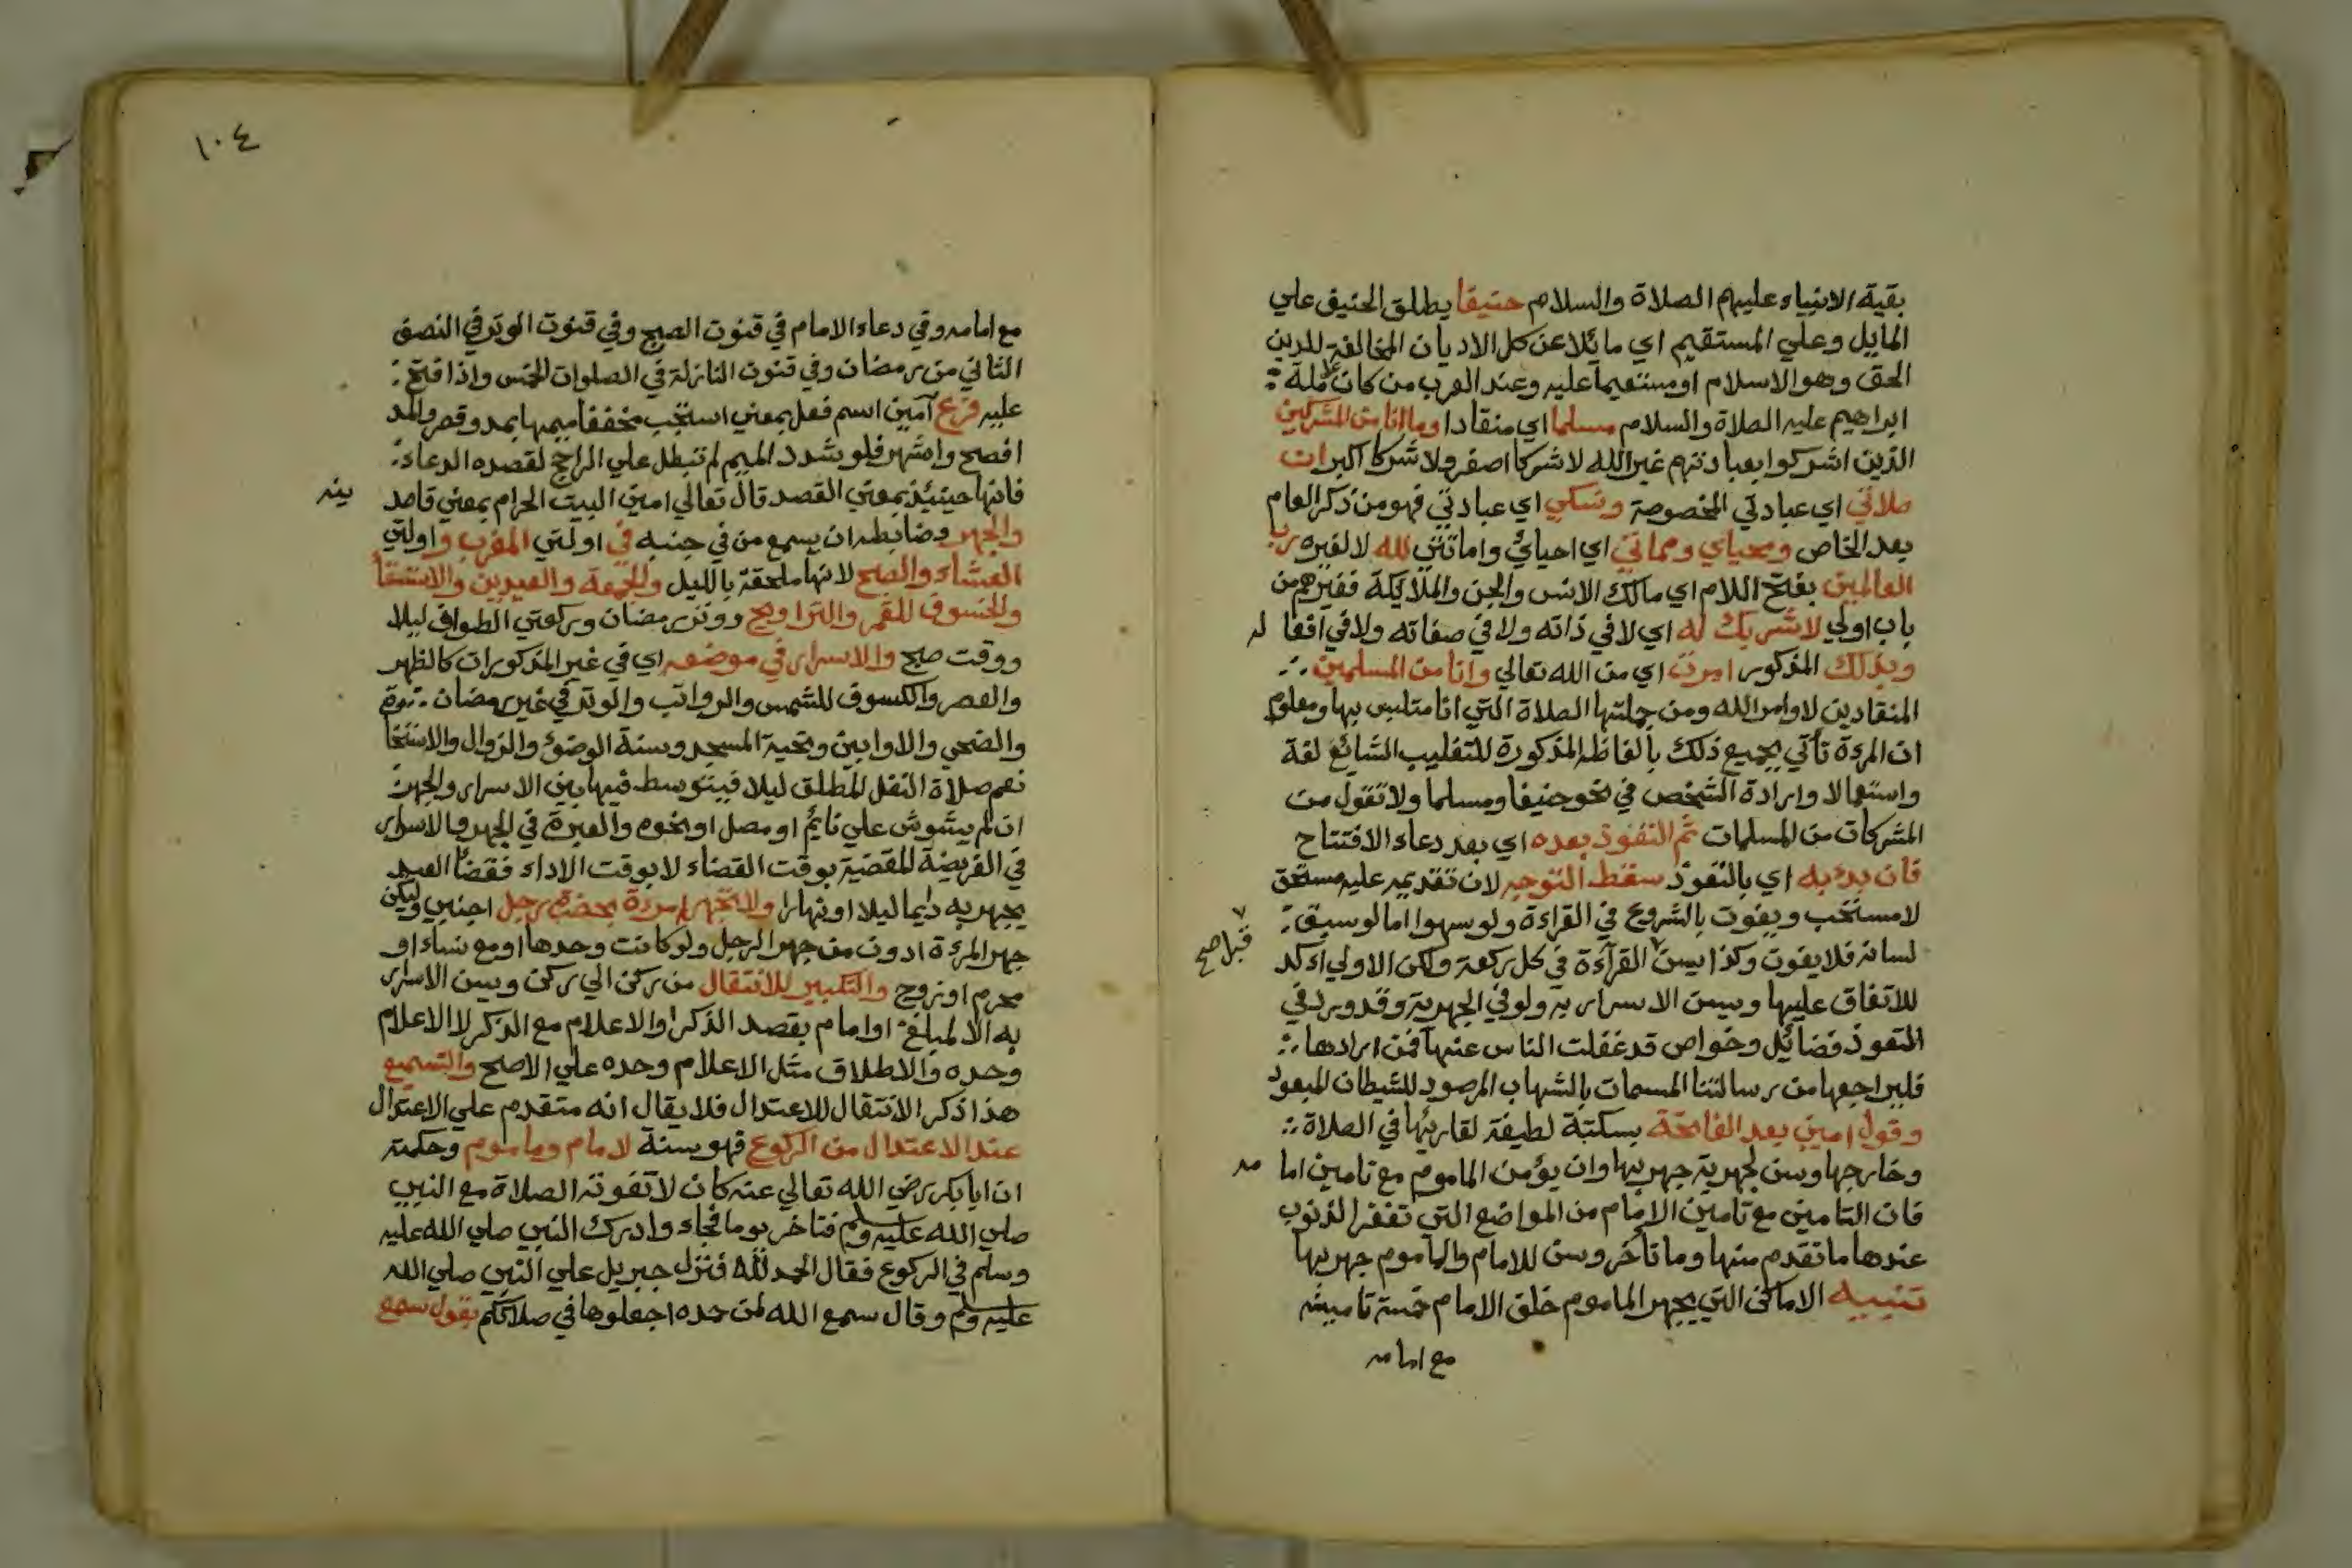 بقية الانبياء عليهم الصلاة والسلام حنيفا يطلق الحنيف علي
المايل وعلي المستقيم اي مائلا عن كل الاديان المخالفة للدين
الحق وهو الاسلام او مستقيما عليه وعند العرب من كان علي ملة
ابراهيم عليه الصلاة والسلام مسلما اي منقادا وما انا من المشركين
الذين اشركوا بعبادتهم غير الله لا شركا اصغر ولا شركا اكبر ان
صلاتي اي عبادتي المخصوصة ونسكي اي عبادتي فهو من ذكر العام
بعد الخاص ومحياي ومماتي اي احيائي واماتتي لله لا لغيره رب
العالمين بفتح اللام اي مالك الانس والجن والملايكة فغيرهم من
باب اولي لا شريك له اي لا في ذاته ولا في صفاته ولا في افعاله
وبذلك المذكور امرت اي من الله تعالي وانا من المسلمين
المنقادين لاوامر الله ومن جملتها الصلاة التي انا متلبس بها ومعلوم
ان المرءة تأتي بجميع ذلك بالفاظه المذكورة للتغليب الشائع لغة
واستعمالا وارادة الشخص في نحو حنيفا ومسلما ولا تقول من
المشركات من المسلمات ثم التعوذ بعده اي بعد دعاء الافتتاح
فان بدء به اي بالتعوذ سقط التوجه لان تقديمه عليه مستحق
لا مستحب ويفوت بالشروع في القراءة ولو سهوا اما لو سبق
لسانه فلا يفوت وكذا يسن القراءة في كل ركعة ولكن الاولي اءكد
قبل صح
للاتفاق عليها ويسن الاسرار به ولو في الجهرية وقد ورد في
التعوذ فضائل وخواص قد غفلت الناس عنها فمن ارادها
فليراجعها من رسالتنا المسمات بالشهاب المرصود للشيطان المبعود
وقول امين بعد الفاتحة بسكتة لطيفة لقارئها في الصلاة
وخارجها وسن لجهرية جهر بها وان يؤمن الماموم مع تامين امامه
فان التامين مع تامين الامام من المواضع التي تغفر الذنوب
عندها ما تقدم منها وما تأخر وسن للامام والماموم جهر بها
تنبيه الاماكن التي يجهر الماموم خلف الامام خمسة تامينه
مع امامه
١٠٤
مع امامه وفي دعاء الامام في قنوت الصبح وفي قنوت الوتر في النصف
الثاني من رمضان وفي قنوت النازلة في الصلوات الخمس واذا فتح
عليه فرع آمين اسم فعل بمعني استجب مخففا ميمها بمد وقصر والمد
افصح واشهر فلو شدد الميم لم تبطل علي الراجح لقصده الدعاء
فانها حينيئذ بمعني القصد قال تعالي امين البيت الحرام بمعني قاصدينه
والجهر وضابطه ان يسمع من في جنبه في اولتي المغرب واولتي
العشاء والصبح لانها ملحقة بالليل والجمعة والعيدين والاستسقا
والخسوف للقمر والتراويح ووتر رمضان وركعتي الطواف ليلا
ووقت صبح والاسرار في موضعه اي في غير المذكورات كالظهر
والعصر والكسوف للشمس والرواتب والوتر في غير رمضان
والضحي والاوابين وتحية المسجد وسنة الوضوئ والزوال والاستخا
نعم صلاة النفل المطلق ليلا فيتوسط فيها بين الاسرار والجهر
ان لم يشوش علي نائم او مصل او نحوه والعبرة في الجهر والاسرار
في الفريضة المقضية بوقت القضاء لا بوقت الاداء فقضا العيد
يجهر به دايما ليلا او نهارا ولا تجهر امرءة بحضرة رجل اجنبي وليكن
جهر المرءة ادون من جهر الرجل ولو كانت وحدها او مع نساء او
محرم او زوج والتكبير للانتقال من ركن الي ركن ويسن الاسرار
به الا لمبلغ او امام بقصد الذكر او الاعلام مع الذكر لا الاعلام
وحده والاطلاق مثل الاعلام وحده علي الاصح والتسميع
هذا ذكر الانتقال للاعتدال فلا يقال انه متقدم علي الاعتدال
عند الاعتدال من الركوع فهو سنة لامام وماموم وحكمته
ان ابا بكر رضي الله تعالي عنه كان لا تفوته الصلاة مع النبي
صلي الله عليه وسلم فتاخر يوما فجاء وادرك النبي صلي الله عليه
وسلم في الركوع فقال الحمد لله فنزل جبريل علي النبي صلي الله
عليه وسلم وقال سمع الله لمن حمده اجعلوها في صلاتكم بقول سمع